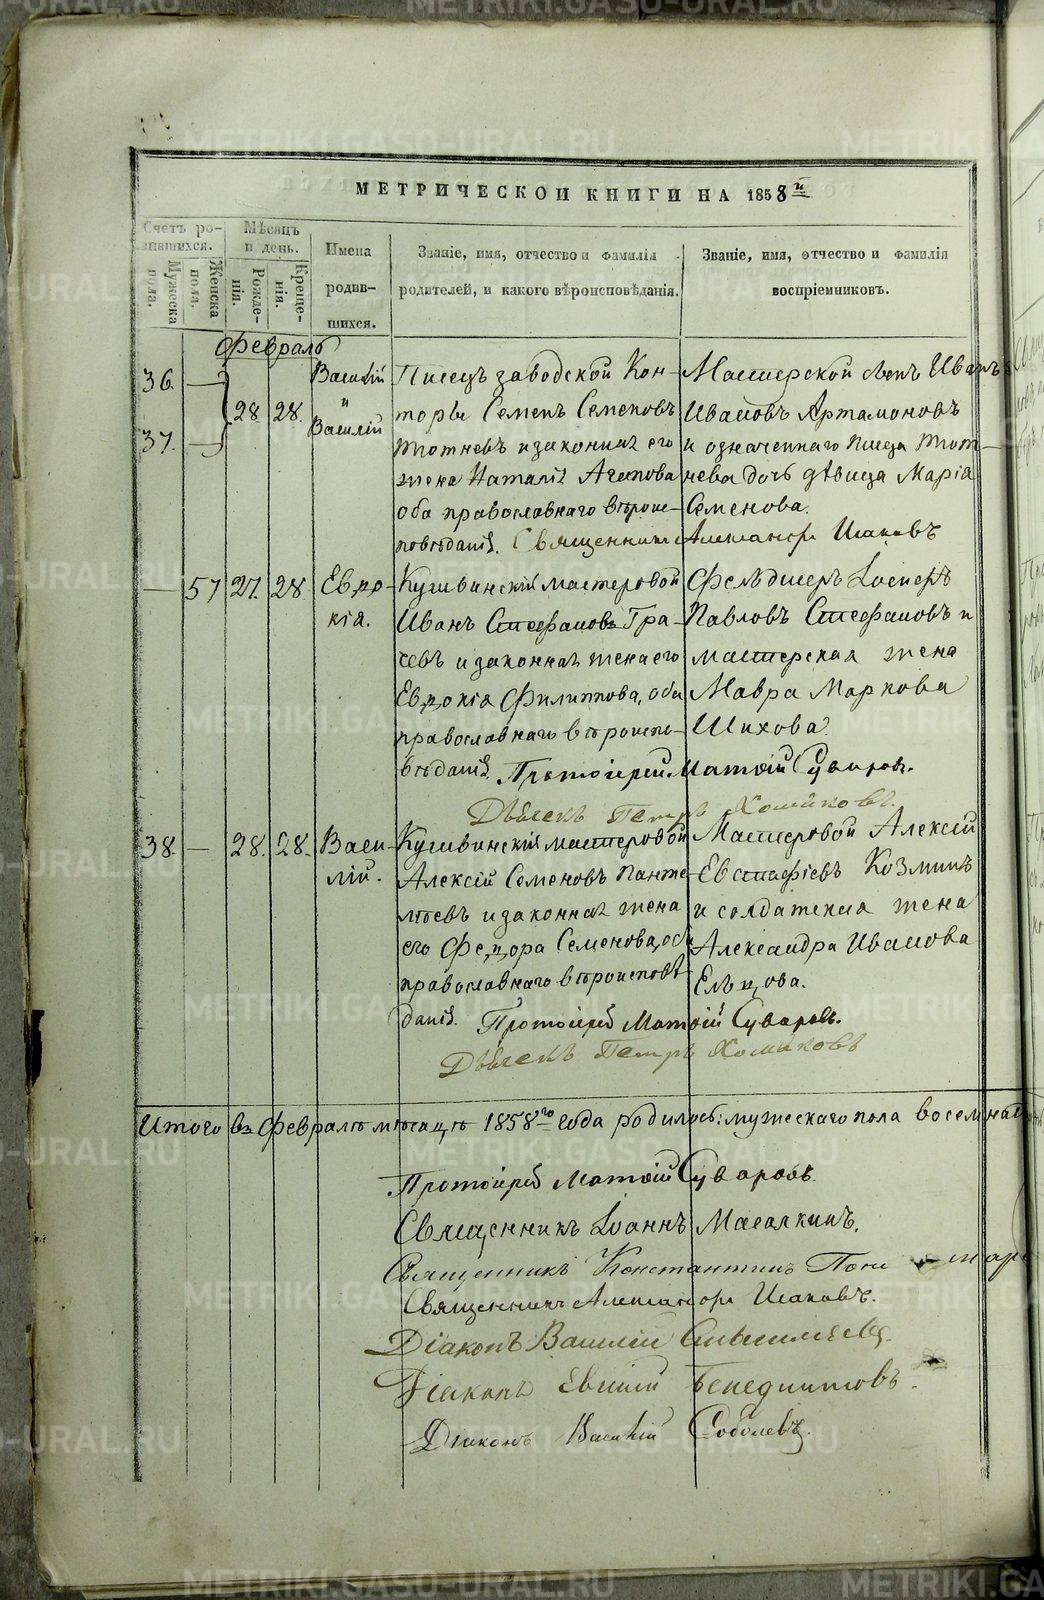 МЕТРИЧЕСКОЙ КНИГИ НА 1858й
Счетъ ро-
дившихся.
Мѣсяцъ
и день.
Мужеска
пола.
Женска
пола.
Рожде-
нія.
Креще-
нія.
Имена
родив-
шихся.
Званіе, имя, отчество и фамилія
родителей, и какого вѣроисповѣданія.
Званіе, имя, отчество и фамилія
воспріемниковъ.
Февраль
36. — 28. 28. Василій
и
37. — Василій
Писецъ заводской Кон-
торы Семенъ Семеновъ
Тотневъ и законная его
жена Наталія Агапова
оба православнаго вѣроис-
повѣданія. Священникъ Александръ Исаковъ
Мастерской сынъ Иванъ
Ивановъ Артамоновъ
и означеннаго писца Тот-
нева дочь дѣвица Марія
Семенова.
— 57 27. 28. Евдо-
кія.
Кушвинскій мастеровой
Иванъ Стефановъ Гра-
чевъ и законная жена его
Евдокія Филиппова, оба
православнаго вѣроиспо-
вѣданія. Протоіерей Матѳій Суваровъ.
Фельдшеръ
Павловъ Стефановъ и
мастерская жена
Мавра Маркова
Шихова.
Дьячекъ Петръ Хомяковъ.
38. — 28. 28. Васи-
лій.
Кушвинскій мастеровой
Алексій Семеновъ Панте-
лѣевъ и законная жена
его Федора Семенова, оба
православнаго вѣроисповѣ-
данія. Протоіерей Матѳій Суваровъ.
Мастеровой Алексій
Евстафіевъ Козминъ
и солдатская жена
Александра Иванова
Ельцова.
Дьячекъ Петръ Хомяковъ
Итого въ Февралѣ мѣсяцѣ 1858го года родилось: мужескаго пола восемнад
Протоіерей Матѳій Суваровъ.
Священникъ Іоаннъ Масалкинъ.
Священникъ Константинъ
Священникъ Александръ Исаковъ.
Діаконъ Василій
Діаконъ Евгеній Бенедиктовъ.
Діаконъ Василій Соболевъ.
METRIKI.GASO-URAL.RU